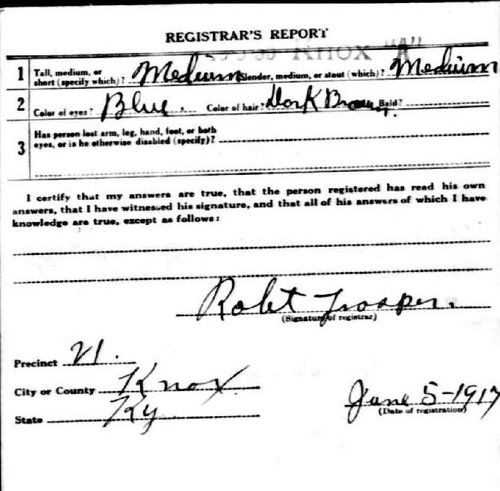 REGISTRAR'S REPORT
KNOX "A"
1 Tall, medium, or short (specify which)? Medium Slender, medium, or stout (which)? Medium
2 Color of eyes? Blue Color of hair? Dark Brown Bald?
3 Has person lost arm, leg, hand, foot, or both
eyes, or is he otherwise disabled (specify)?
I certify that my answers are true, that the person registered has read his own
answers, that I have witnessed his signature, and that all of his answers of which I have
knowledge are true, except as follows:
Robt Trosper.
(Signature of registrar)
Precinct 21.
City or County Knox
State Ky
June 5-1917
(Date of registration)